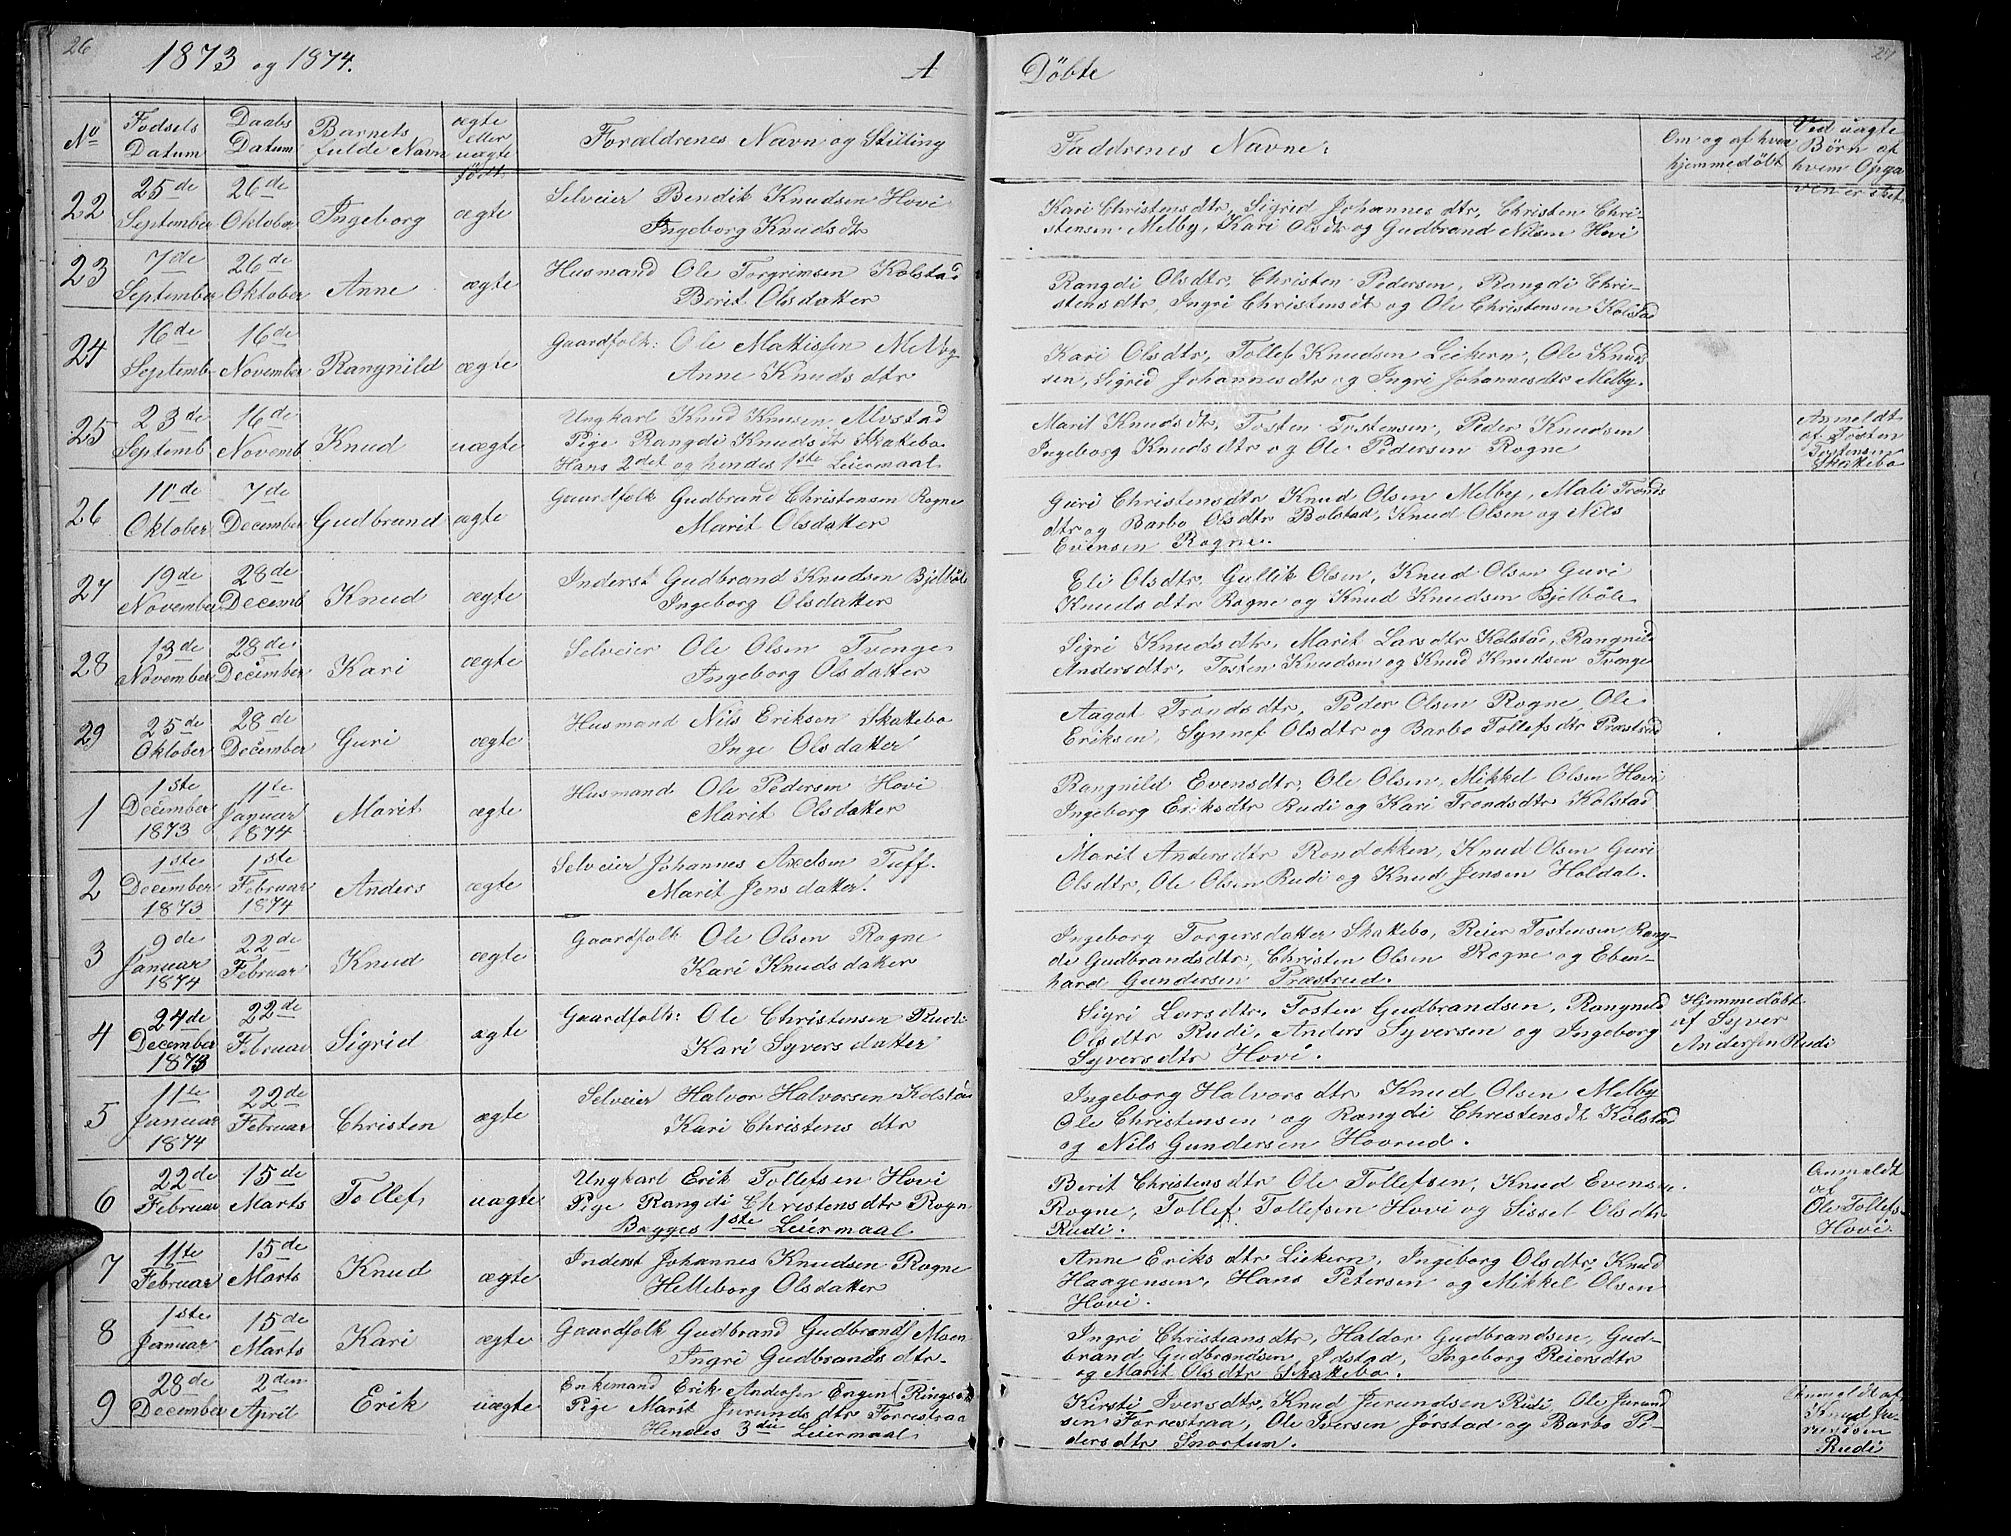 26
1873 og 1874.
A
Döbte
27
No
Fødsels Datum
Daabs Datum
Barnets fulde Navn
ægte eller uægte født.
Forældrenes Navn og Stilling
Faddrenes Navne.
Om og af hvem hjemmedöbt
Ved uægte Børn af hvem Opgaven er sket
22
25de September
26de Oktober
Ingeborg
ægte
Selveier Bendik Knudsen Hovi
Ingeborg Knudsdtr
Kari Christensdtr, Sigrid Johannesdtr, Christen Chri-
stensen Melby, Kari Olsdtr og Gudbrand Nilsen Hovi
23
7de September
26de Oktober
Anne
ægte
Husmand Ole Torgrimsen Kolstad
Berit Olsdatter
Rangdi Olsdtr, Christen Pedersen, Rangdi Chri-
stensdtr, Ingri Christensdt og Ole Christensen Kolstad
24
16de Septemb
16de November
Rangnild
ægte
Gaardfolk: Ole Mattissen Melby
Anne Knudsdtr
Kari Olsdtr, Tollef Knudsen Liekern, Ole Knud
sen, Sigrid Johannesdtr og Ingri Johannesdtr Melby.
25
23de Septemb
16de Novemb
Knud
uægte
Ungkarl Knud Knusen Alvstad
Pige Rangdi Knudsdt Skattebo
Hans 2det og hendes 1ste Leiermaal
Marit Knudsdtr, Tosten Tostensen, Peder Knudsen
Ingeborg Knudsdtr og Ole Pedersen Rogne
Anmeldt
af Tosten
Tostensen
Skattebo
26
10de Oktober
7de December
Gudbrand
ægte
Gaardfolk Gudbrand Christensen Rogne
Marit Olsdatter
Guri Christensdtr Knud Olsen Melby, Mali Tronds
dtr og Barbo Olsdtr Bolstad, Knud Olsen og Nils
Evensen Rogne.
27
19de November
28de Decemb
Knud
ægte
Inderst Gudbrand Knudsen Bjelböle
Ingeborg Olsdatter
Eli Olsdtr Gullik Olsen, Knud Olsen Guri
Knudsdtr Rogne og Knud Knudsen Bjelböle
28
13de November
28de December
Kari
ægte
Selveier Ole Olsen Tvenge
Ingeborg Olsdatter
Sigri Knudsdtr, Marit Larsdtr Kolstad, Rangnild
Andersdtr, Tosten Knudsen og Knud Knudsen Tvenge
29
25de Oktober
28de December
Guri
ægte
Husmand Nils Eriksen Skattebo
Inge Olsdatter
Aagot Trondsdtr, Peder Olsen Rogne, Ole
Eriksen, Synnef Olsdtr og Barbo Tollefsdtr Præstrud
1
1ste December 1873
11te Januar 1874
Marit
ægte
Husmand Ole Pedersen Hovi
Marit Olsdatter
Rangnild Evensdtr, Ole Olsen, Mikkel Olsen Hovi
Ingeborg Eriksdtr Rudi og Kari Trondsdtr Kolstad
2
1ste December 1873
1ste Februar 1874
Anders
ægte
Selveier Johannes Axelsen Tuff.
Marit Jensdatter
Marit Andersdtr Rondokken, Knud Olsen Guri
Olsdtr, Ole Olsen Rudi og Knud Jensen Holdal.
3
9de Januar 1874
22de Februar
Knud
ægte
Gaardfolk Ole Olsen Rogne
Kari Knudsdatter
Ingeborg Torgersdatter Skattebo, Reier Tostensen, Rang-
di Gudbrandsdtr, Christen Olsen Rogne og Eben-
hard Gundersen Præstrud.
4
24de December 1873
22de Februar
Sigrid
ægte
Gaardfolk: Ole Christensen Rudi
Kari Syversdatter
Sigri Larsdtr, Tosten Gudbrandsen, Rangnild
Olsdtr Rudi, Anders Syversen og Ingeborg
Syversdtr Hovi.
Hjemmedöbt
af Syver
Andersen Rudi
5
11te Januar 1874
22de Februar
Christen
ægte
Selveier Halvor Halvorsen Kolstad
Kari Christensdtr
Ingeborg Halvorsdtr Knud Olsen Melby
Ole Christensen og Rangdi Christensdt Kolstad
og Nils Gundersen Hovrud.
6
22de Februar
15de Marts
Tollef
uægte
Ungkarl Erik Tollefsen Hovi
Pige Rangdi Christensdtr Rogn
Begges 1ste Leiermaal
Berit Christensdtr Ole Tollefsen, Knud Evensen
Rogne, Tollef Tollefsen Hovi og Sissel Olsdtr
Rudi.
Anmeldt
af
Ole Tollefs-
Hovi
7
11te Februar
15de Marts
Knud
ægte
Inderst Johannes Knudsen Rogne
Helleborg Olsdatter
Anne Eriksdtr Liekern, Ingeborg Olsdtr, Knud
Haagensen, Hans Petersen og Mikkel Olsen
Hovi.
8
1ste Januar
15de Marts
Kari
ægte
Gaardfolk Gudbrand Gudbrands Moen
Ingri Gudbrandsdtr.
Ingri Christiansdtr, Haldor Gudbrandsen, Gud-
brand Gudbrandsen Jdstad, Ingeborg Reiersdtr
og Marit Olsdtr Skattebo.
9
28de December
2den April
Erik
uægte
Enkemand Erik Andersen Engen (Ringsak
Pige Marit Jurundsdtr Forrestraa
Hendes 3die Leiermaal
Kirsti Iversdtr, Knud Jurundsen Rudi, Ole Jurund
sen Forrestraa, Ole Iversen Jörstad og Barbo Pe-
dersdtr Snortum.
Anmeldt af
Knud Ju-
rundsen
Rudi